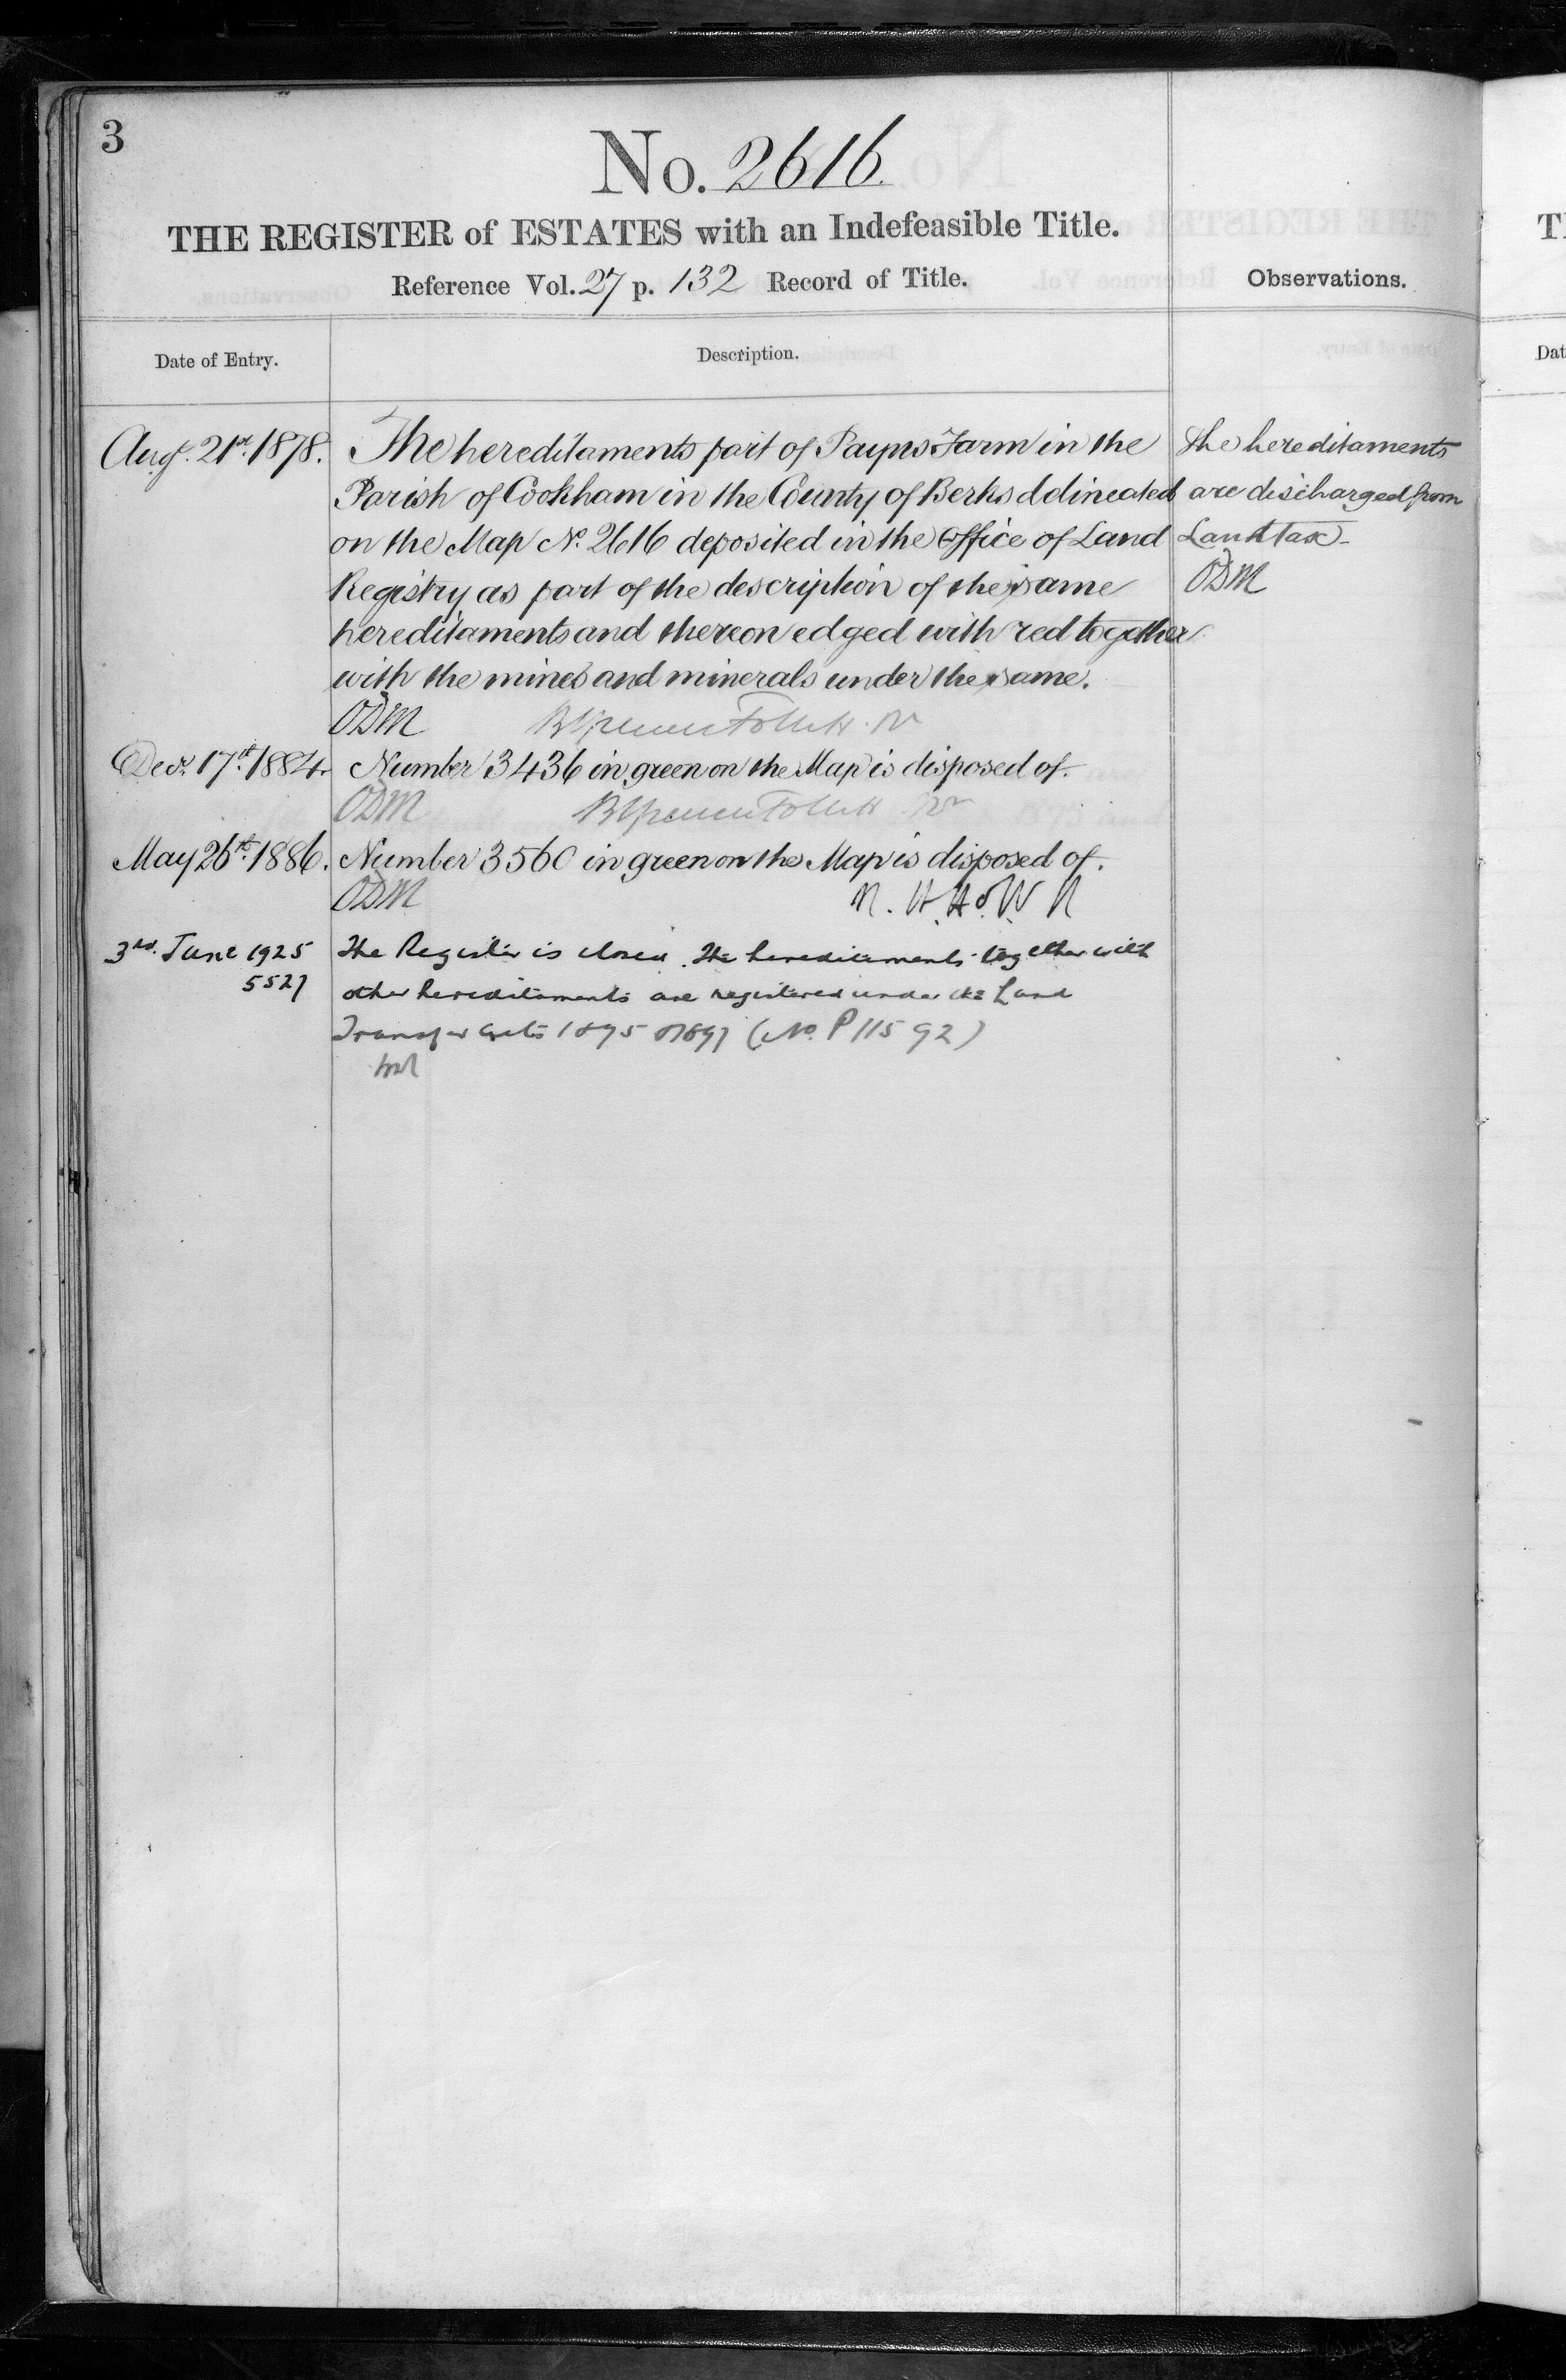 3
No. 2616.
THE REGISTER of ESTATES with an Indefeasible Title.
Reference Vol. 27 p. 132 Record of Title.
Observations.
Date of Entry.
Description.
Augt. 21st. 1878.
The hereditaments part of Payns Farm in the
Parish of Cookham in the County of Berks ddineated
on the Map No. 2616 deposited in the Office of Land
Registry as part of the description of the same
hereditaments and thereon edged with red together
with the mines and minerals under the same.
ODM
The hereditaments
are discharged from
Land Tax
ODM
Decr. 17th. 1884.
Number 3436 in green on the Map is disposed of.
ODM
May 26th. 1886.
Number 3560 in green on the Map is disposed of.
ODM
3rd. June 1925
5527
The Register is closed. The hereditaments together with
other hereditaments are registered under the Land
Transfer Acts 1875 & 1897 (No. P 11592)